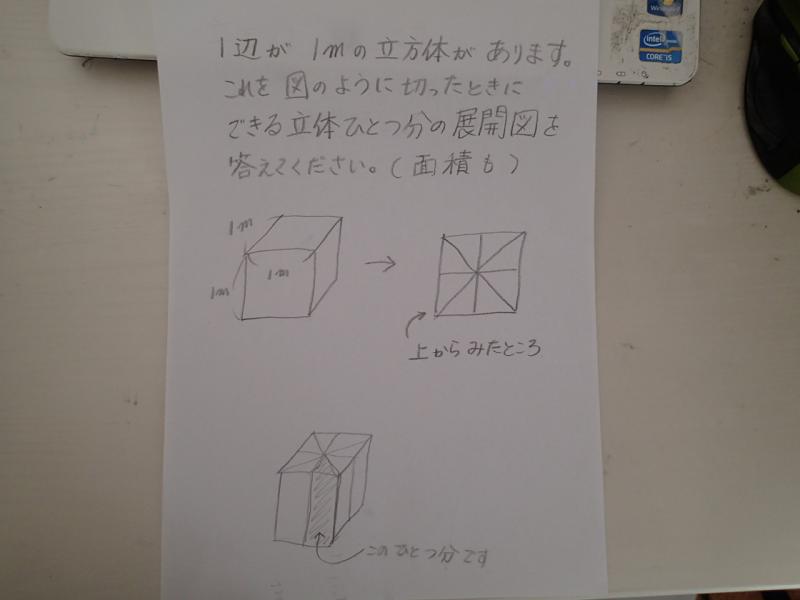 Windows
intel
CORE i5
1辺が 1mの立方体が あります。
これを 図のように 切ったときに
できる立体ひとつ分の展開図を
答えてください。(面積も)
1m
1m
1m
上から みたところ
このひとつ分です